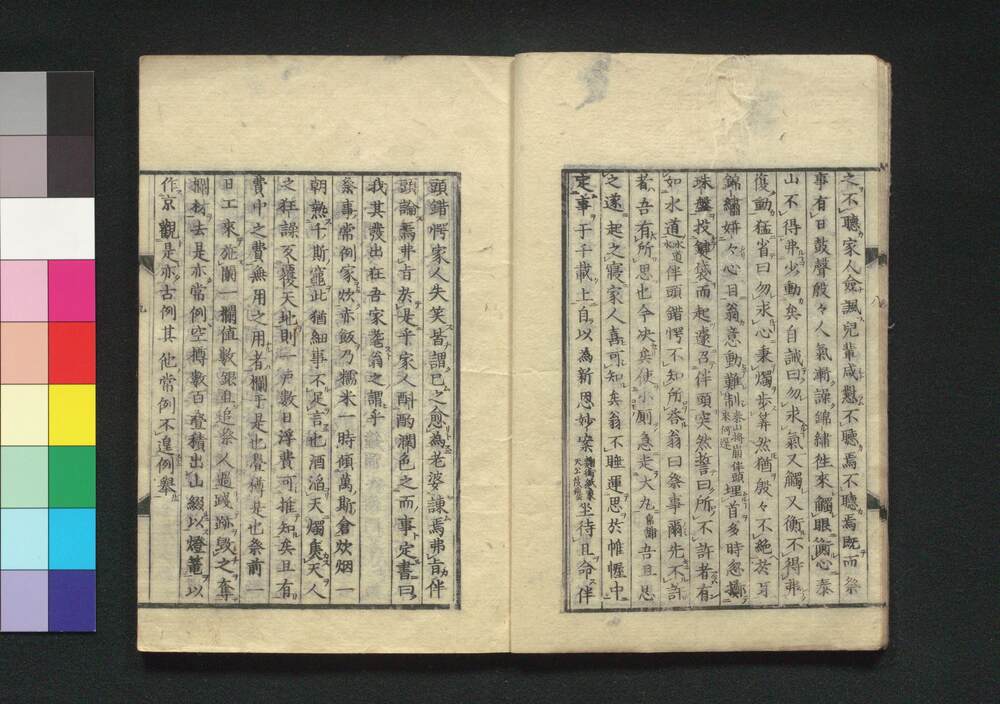 之不聽家人愈諷兒輩成懇不聽焉不聽焉既而祭
事有日鼓聲殷々人氣漸譟錦繡徃來觸眼衝心泰
山不得弗少動矣自識曰勿求氣又觸又衡不得弗
復動猛省曰勿求心秉燭步筭然猶殷々不絕於耳
錦繡妍々心目翁意動難制泰山將崩伴頭埋首多時忽擲
珠盤投鍵袋而起遽召伴頭突然誓曰所不許者有
如水道水道水伴頭錯愕不知所答翁曰祭事爾先不許
者吾有所思也今决矣使小廝急走大丸吾且思
之遂起之寢家人喜可知矣翁不睡運思於帷幄中
定事于千載上自以為新思妙案坐待旦命伴
頭錯愕家人失笑皆謂已之愈為老婆諫焉弗肯伴
頭論焉弗肯於是乎家人斟酌潤色之而事定書曰
我其發出狂吾家耄翁之謂乎
祭事常例家炊赤飯乃糯米一時傾萬斯倉炊烟一
朝熱千斯竈此猶細事不足言也酒滔天燭焦天人
之狂譟亥覆天地則一數日浮費可推知矣且有
費中之費無用之用者欄于是也疊樽是也祭前一
日工來施闌一欄值數銀且追祭人過踐跡毀之奪
欄材去是亦常例空樽數百疊積出山綴以燈籠以
作京觀是亦古例其他常例不遑例舉